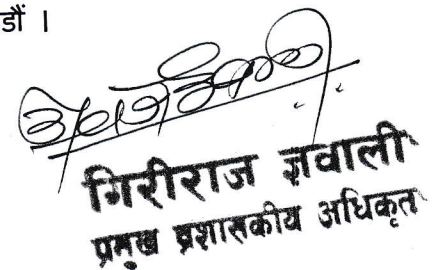 डौं ।
गिरीराज ज्ञवाली
प्रमुख प्रशासकीय अधिकृत